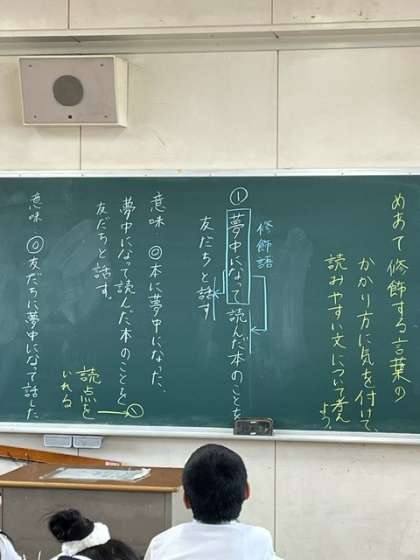 めあて修飾する言葉の
かかり方に気を付けて、
読みやすい文について考え
よう。
修飾語
①夢中になって読んだ本のことを
友だちと話す
意味 ◎本に夢中になった。
夢中になって読んだ本のことを
友だちと話す。
読点を
いれる
意味 ◎友だちに夢中になって話した